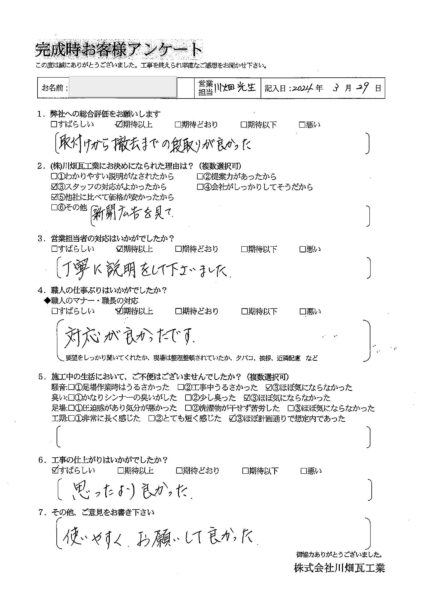 完成時お客様アンケート
この度は誠にありがとうございました。工事を終えられ率直なご感想をお聞かせ下さい。
お名前: 営業担当 川畑 先生 記入日:2024年 3月 29日
1. 弊社への総合評価をお願いします
□すばらしい ☑期待以上 □期待どおり □期待以下 □悪い
取付けから撤去までの段取りが良かった
2. (株)川畑瓦工業にお決めになられた理由は? (複数選択可)
□①わかりやすい説明がなされたから □②提案力があったから
☑③スタッフの対応がよかったから □④会社がしっかりしてそうだから
☑⑤他社に比べて価格が安かったから
□⑥その他 新聞広告を見て
3. 営業担当者の対応はいかがでしたか?
□すばらしい ☑期待以上 □期待どおり □期待以下 □悪い
丁寧に説明をして下さいました
4. 職人の仕事ぶりはいかがでしたか?
◆職人のマナー・職長の対応
□すばらしい ☑期待以上 □期待どおり □期待以下 □悪い
対応が良かったです。
要望をしっかり聞いてくれたか、現場は整理整頓されていたか、タバコ、挨拶、近隣配慮 など
5. 施工中の生活において、ご不便はございませんでしたか? (複数選択可)
騒音:□①足場作業時はうるさかった □②工事中うるさかった ☑③ほぼ気にならなかった
臭い:□①かなりシンナーの臭いがした □②少し臭った ☑③ほぼ気にならなかった
足場:□①圧迫感があり気分が悪かった □②洗濯物が干せず苦労した □③ほぼ気にならなかった
工期:□①非常に長く感じた □②とても短く感じた ☑③ほぼ計画通りで想定内であった
6. 工事の仕上がりはいかがでしたか?
☑すばらしい □期待以上 □期待どおり □期待以下 □悪い
思ったより良かった
7. その他、ご意見をお書き下さい
使いやすく、お願いして良かった
御協力ありがとうございました。
株式会社川畑瓦工業